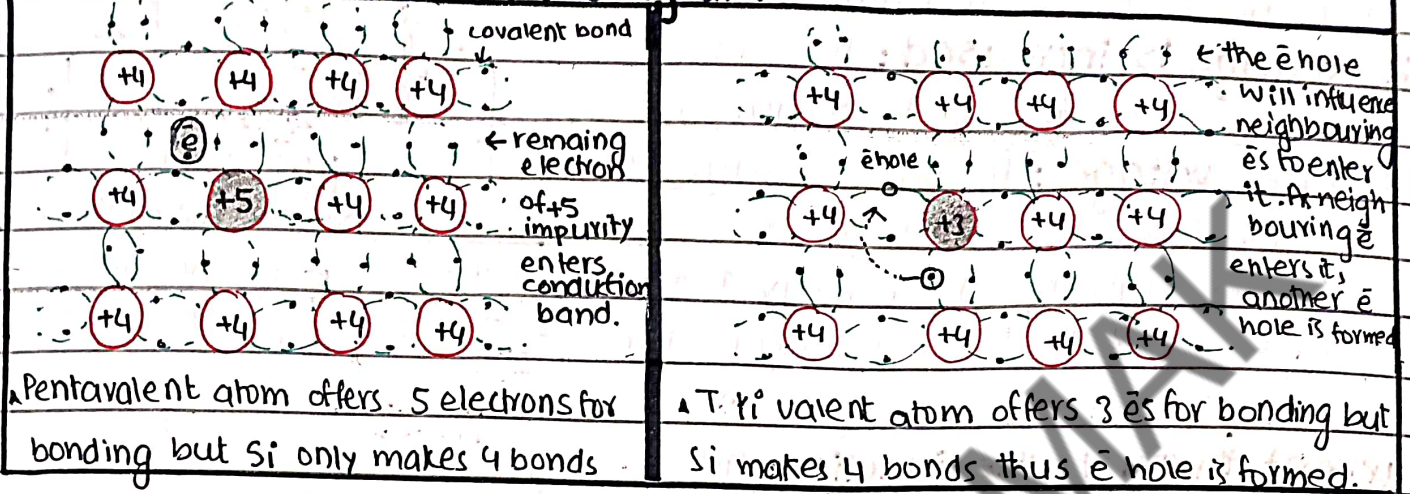 covalent bond
+4 +4 +4 +4
ē
← remaing
electron
+4 +5 +4 +4
of +5
impurity
enters
conduction
band.
+4 +4 +4 +4
Pentavalent atom offers 5 electrons for
bonding but Si only makes 4 bonds
← the ē hole
+4 +4 +4 +4
will influence
neighbouring
ē hole
ēs to enter
+4 +3 +4 +4
it. A neigh
bouring ē
enters it,
another ē
hole is formed
+4 +4 +4 +4
Tri valent atom offers 3 ēs for bonding but
Si makes 4 bonds thus ē hole is formed.
MAK